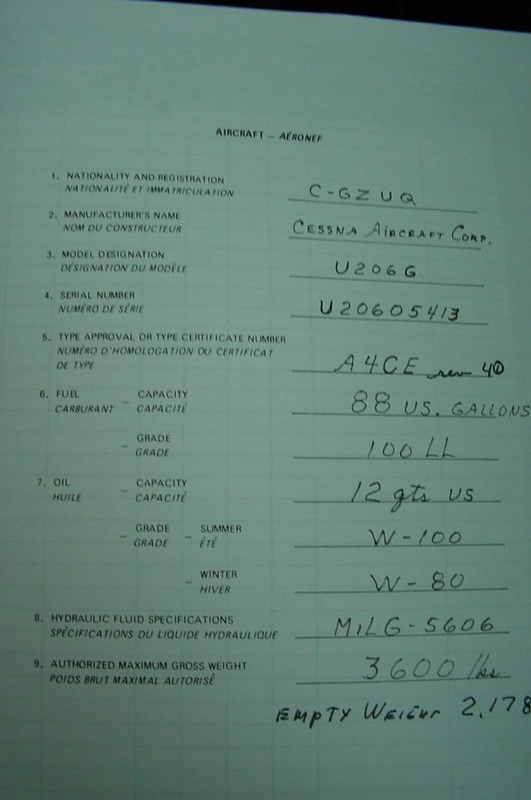 AIRCRAFT – AÉRONEF
1. NATIONALITY AND REGISTRATION
NATIONALITÉ ET IMMATRICULATION
C-GZUQ
2. MANUFACTURER'S NAME
NOM DU CONSTRUCTEUR
CESSNA AIRCRAFT CORP.
3. MODEL DESIGNATION
DÉSIGNATION DU MODÈLE
U206G
4. SERIAL NUMBER
NUMÉRO DE SÉRIE
U20605413
5. TYPE APPROVAL OR TYPE CERTIFICATE NUMBER
NUMÉRO D'HOMOLOGATION OU CERTIFICAT
DE TYPE
A4CE rev 40
6. FUEL – CAPACITY
CARBURANT CAPACITÉ
88 US. GALLONS
– GRADE
GRADE
100 LL
7. OIL – CAPACITY
HUILE CAPACITÉ
12 qts US
– GRADE – SUMMER
GRADE ÉTÉ
W-100
– WINTER
HIVER
W-80
8. HYDRAULIC FLUID SPECIFICATIONS
SPÉCIFICATIONS DU LIQUIDE HYDRAULIQUE
MILG-5606
9. AUTHORIZED MAXIMUM GROSS WEIGHT
POIDS BRUT MAXIMAL AUTORISÉ
3600 lbs
EMPTY WEIGHT 2,178